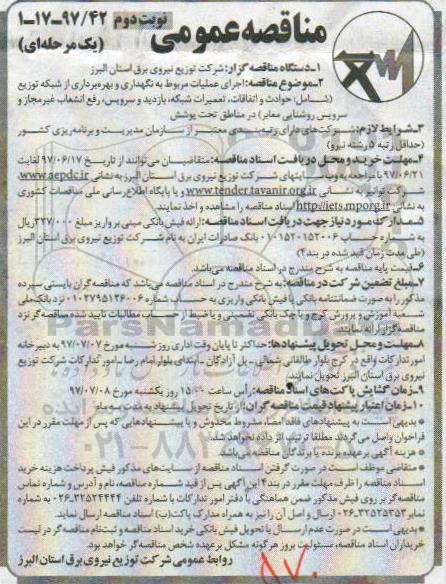 مناقصه عمومی
نوبت دوم ۹۷/۴۲-۱۷-۱
(یک مرحله‌ای)
۱-دستگاه مناقصه گزار: شرکت توزیع نیروی برق استان البرز
۲-موضوع مناقصه: اجرای عملیات مربوط به نگهداری و بهره‌برداری از شبکه توزیع
(شامل: حوادث و اتفاقات، تعمیرات شبکه، بازدید و سرویس، رفع انشعاب غیرمجاز و
سرویس روشنایی معابر) در مناطق تحت پوشش
۳-شرایط لازم: شرکت‌های دارای رتبه‌بندی معتبر از سازمان مدیریت و برنامه‌ریزی کشور
(حداقل رتبه ۵ رشته نیرو)
۴-مهلت خرید و محل دریافت اسناد مناقصه: متقاضیان می‌توانند از تاریخ ۹۷/۰۶/۱۷ لغایت
۹۷/۰۶/۲۱ با مراجعه به وب سایتهای شرکت توزیع نیروی برق استان البرز به نشانی www.aepdc.ir
شرکت توانیر به نشانی www.tender.tavanir.org.ir و یا پایگاه اطلاع رسانی ملی مناقصات کشوری
به نشانی http://iets.mporg.ir اسناد مناقصه را مشاهده و اخذ نمایند.
۵-مدارک مورد نیاز جهت دریافت اسناد مناقصه: ارائه فیش بانکی مبنی بر واریز مبلغ ۳۲۷/۰۰۰ ریال
به شماره حساب ۰۱۰۱۵۲۰۱۵۲۰۰۶ بانک صادرات ایران به نام شرکت توزیع نیروی برق استان البرز
(طی مدت زمان قید شده در بند۴)
۶-قیمت پایه مناقصه به شرح مندرج در اسناد مناقصه می‌باشد.
۷-مبلغ تضمین شرکت در مناقصه: به شرح مندرج در اسناد مناقصه می‌باشد که مناقصه‌گران بایستی سپرده
مذکور را به صورت ضمانتنامه بانکی یا فیش بانکی واریزی به حساب شماره ۰۱۰۲۷۹۵۱۲۶۰۰۶ نزد بانک ملی
شعبه آموزش و پرورش کرج و یا چک بانکی تضمینی و یا ضبط از حساب مطالبات تایید شده مناقصه‌گر نزد
مناقصه‌گزار ارائه نمایند.
۸-مهلت و محل تحویل پیشنهادها: حداکثر تا پایان وقت اداری روز شنبه مورخ ۹۷/۰۷/۰۷ به دبیرخانه
امور تدارکات واقع در کرج بلوار طالقانی شمالی - پل آزادگان - ابتدای بلوار امام رضا - امور تدارکات شرکت توزیع
نیروی برق استان البرز تحویل نمایند.
۹-زمان گشایش پاکت‌های اسناد مناقصه: راس ساعت ۱۵/۰۰ روز یکشنبه مورخ ۹۷/۰۷/۰۸
۱۰-زمان اعتبار پیشنهاد قیمت مناقصه گران: از تاریخ تحویل پیشنهاد به مدت سه ماه
* بدیهی است به پیشنهادهای فاقد امضا، مشروط، مخدوش و یا پیشنهادهایی که پس از مهلت مقرر در این
فراخوان واصل می‌گردند مطلقا ترتیب اثر داده نخواهد شد.
* هزینه آگهی بر عهده برنده یا برندگان مناقصه می‌باشد.
* متقاضی موظف است در صورت گرفتن اسناد مناقصه از سایت‌های مذکور فیش پرداخت هزینه خرید
اسناد مناقصه را ظرف مهلت مقرر در بند ۴ این آگهی پس از قید شماره مناقصه، نام و آدرس و شماره تماس
مناقصه‌گر بر روی فیش مذکور ضمن هماهنگی با دفتر امور تدارکات با شماره تلفن ۰۲۶-۳۲۵۲۴۴۴۴ به شماره
نمابر ۰۲۶-۳۲۵۲۵۳۵۳ ارسال و اصل آن را نیز به همراه مدارک پاکت(ب) اسناد مناقصه ارسال نماید.
* بدیهی است در صورت عدم ارسال یا تحویل فیش بانکی خرید اسناد مناقصه و ثبت‌نام مناقصه گر در لیست
خریداران اسناد مناقصه، مسئولیت بروز هر گونه مشکل بر عهده شخص مناقصه‌گر خواهد بود.
روابط عمومی شرکت توزیع نیروی برق استان البرز